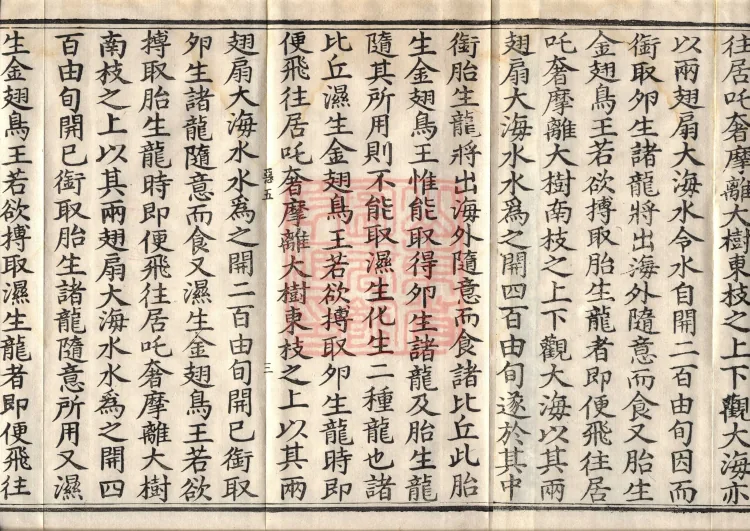 往居吒奢摩離大樹東枝之上下觀大海亦
以兩翅扇大海水令水自開二百由旬因而
銜取卵生諸龍將出海外隨意而食又胎生
金翅鳥王若欲搏取胎生龍者即便飛往居
吒奢摩離大樹南枝之上下觀大海以其兩
翅扇大海水水爲之開四百由旬遂於其中
銜胎生龍將出海外隨意而食諸比丘此胎
生金翅鳥王惟能取得卵生諸龍及胎生龍
隨其所用則不能取濕生化生二種龍也諸
比丘濕生金翅鳥王若欲搏取卵生龍時即
便飛往居吒奢摩離大樹東枝之上以其兩
惡五 三
翅扇大海水水爲之開二百由旬開已銜取
卵生諸龍隨意而食又濕生金翅鳥王若欲
搏取胎生龍時即便飛往居吒奢摩離大樹
南枝之上以其兩翅扇大海水水爲之開四
百由旬開已銜取胎生諸龍隨意所用又濕
生金翅鳥王若欲搏取濕生龍者即便飛往